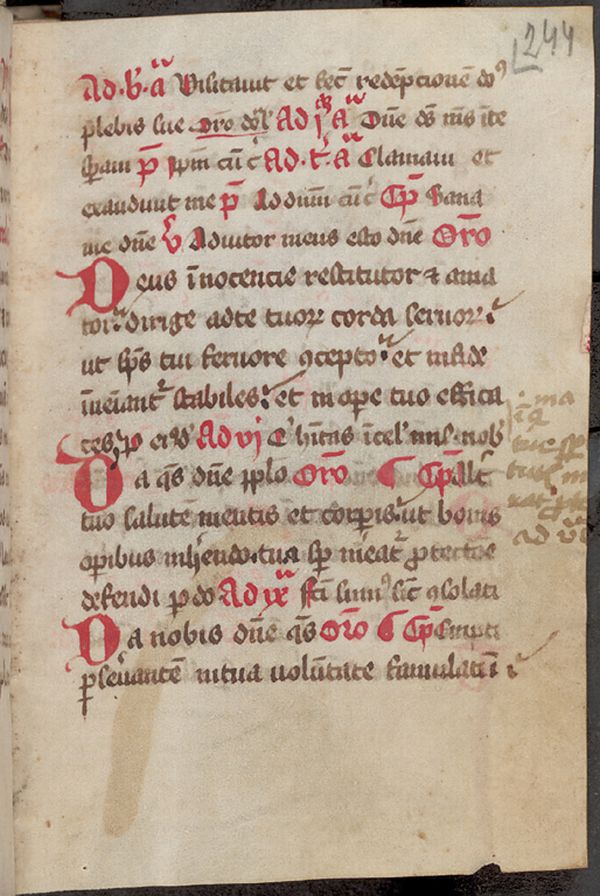 244
Ad b̄ a Visitauit et fec̄ redēpcionē do⁹
plebis sue Oro do᷑ Ad j a Dn̄e ds̄ n̄rs in te
sp̄aui p̄ ip̄m cū Ad t a Clamaui et
exaudiuit me p̄ Ad dn̄m cū Cp̄ Sana
me dn̄e ℣ Adiutor meus esto dn̄e Oro
Deus īnocencie restitutor ⁊ ama
tor dirige ad te tuoꝝ corda seruoꝝ
ut sp̄s tui feruore ꝯcepto et in fide
īueniant᷑ stabiles et in ope tuo effica
ces p Ad vj Q̇ h̄itas ī cel mis nob̄
Da q̄s dn̄e pplo Oro Cp̄
tuo salutē mentis et corpis ut bonis
opibus inh̄endo tua sp̄ meat᷑ ꝓtectōe
defendi p do Ad ix Fcī sum⁹ sic̄ ꝯsolati
Da nobis dn̄e q̄s Oro Cp̄
pseuantē in tua volūtate famulatū